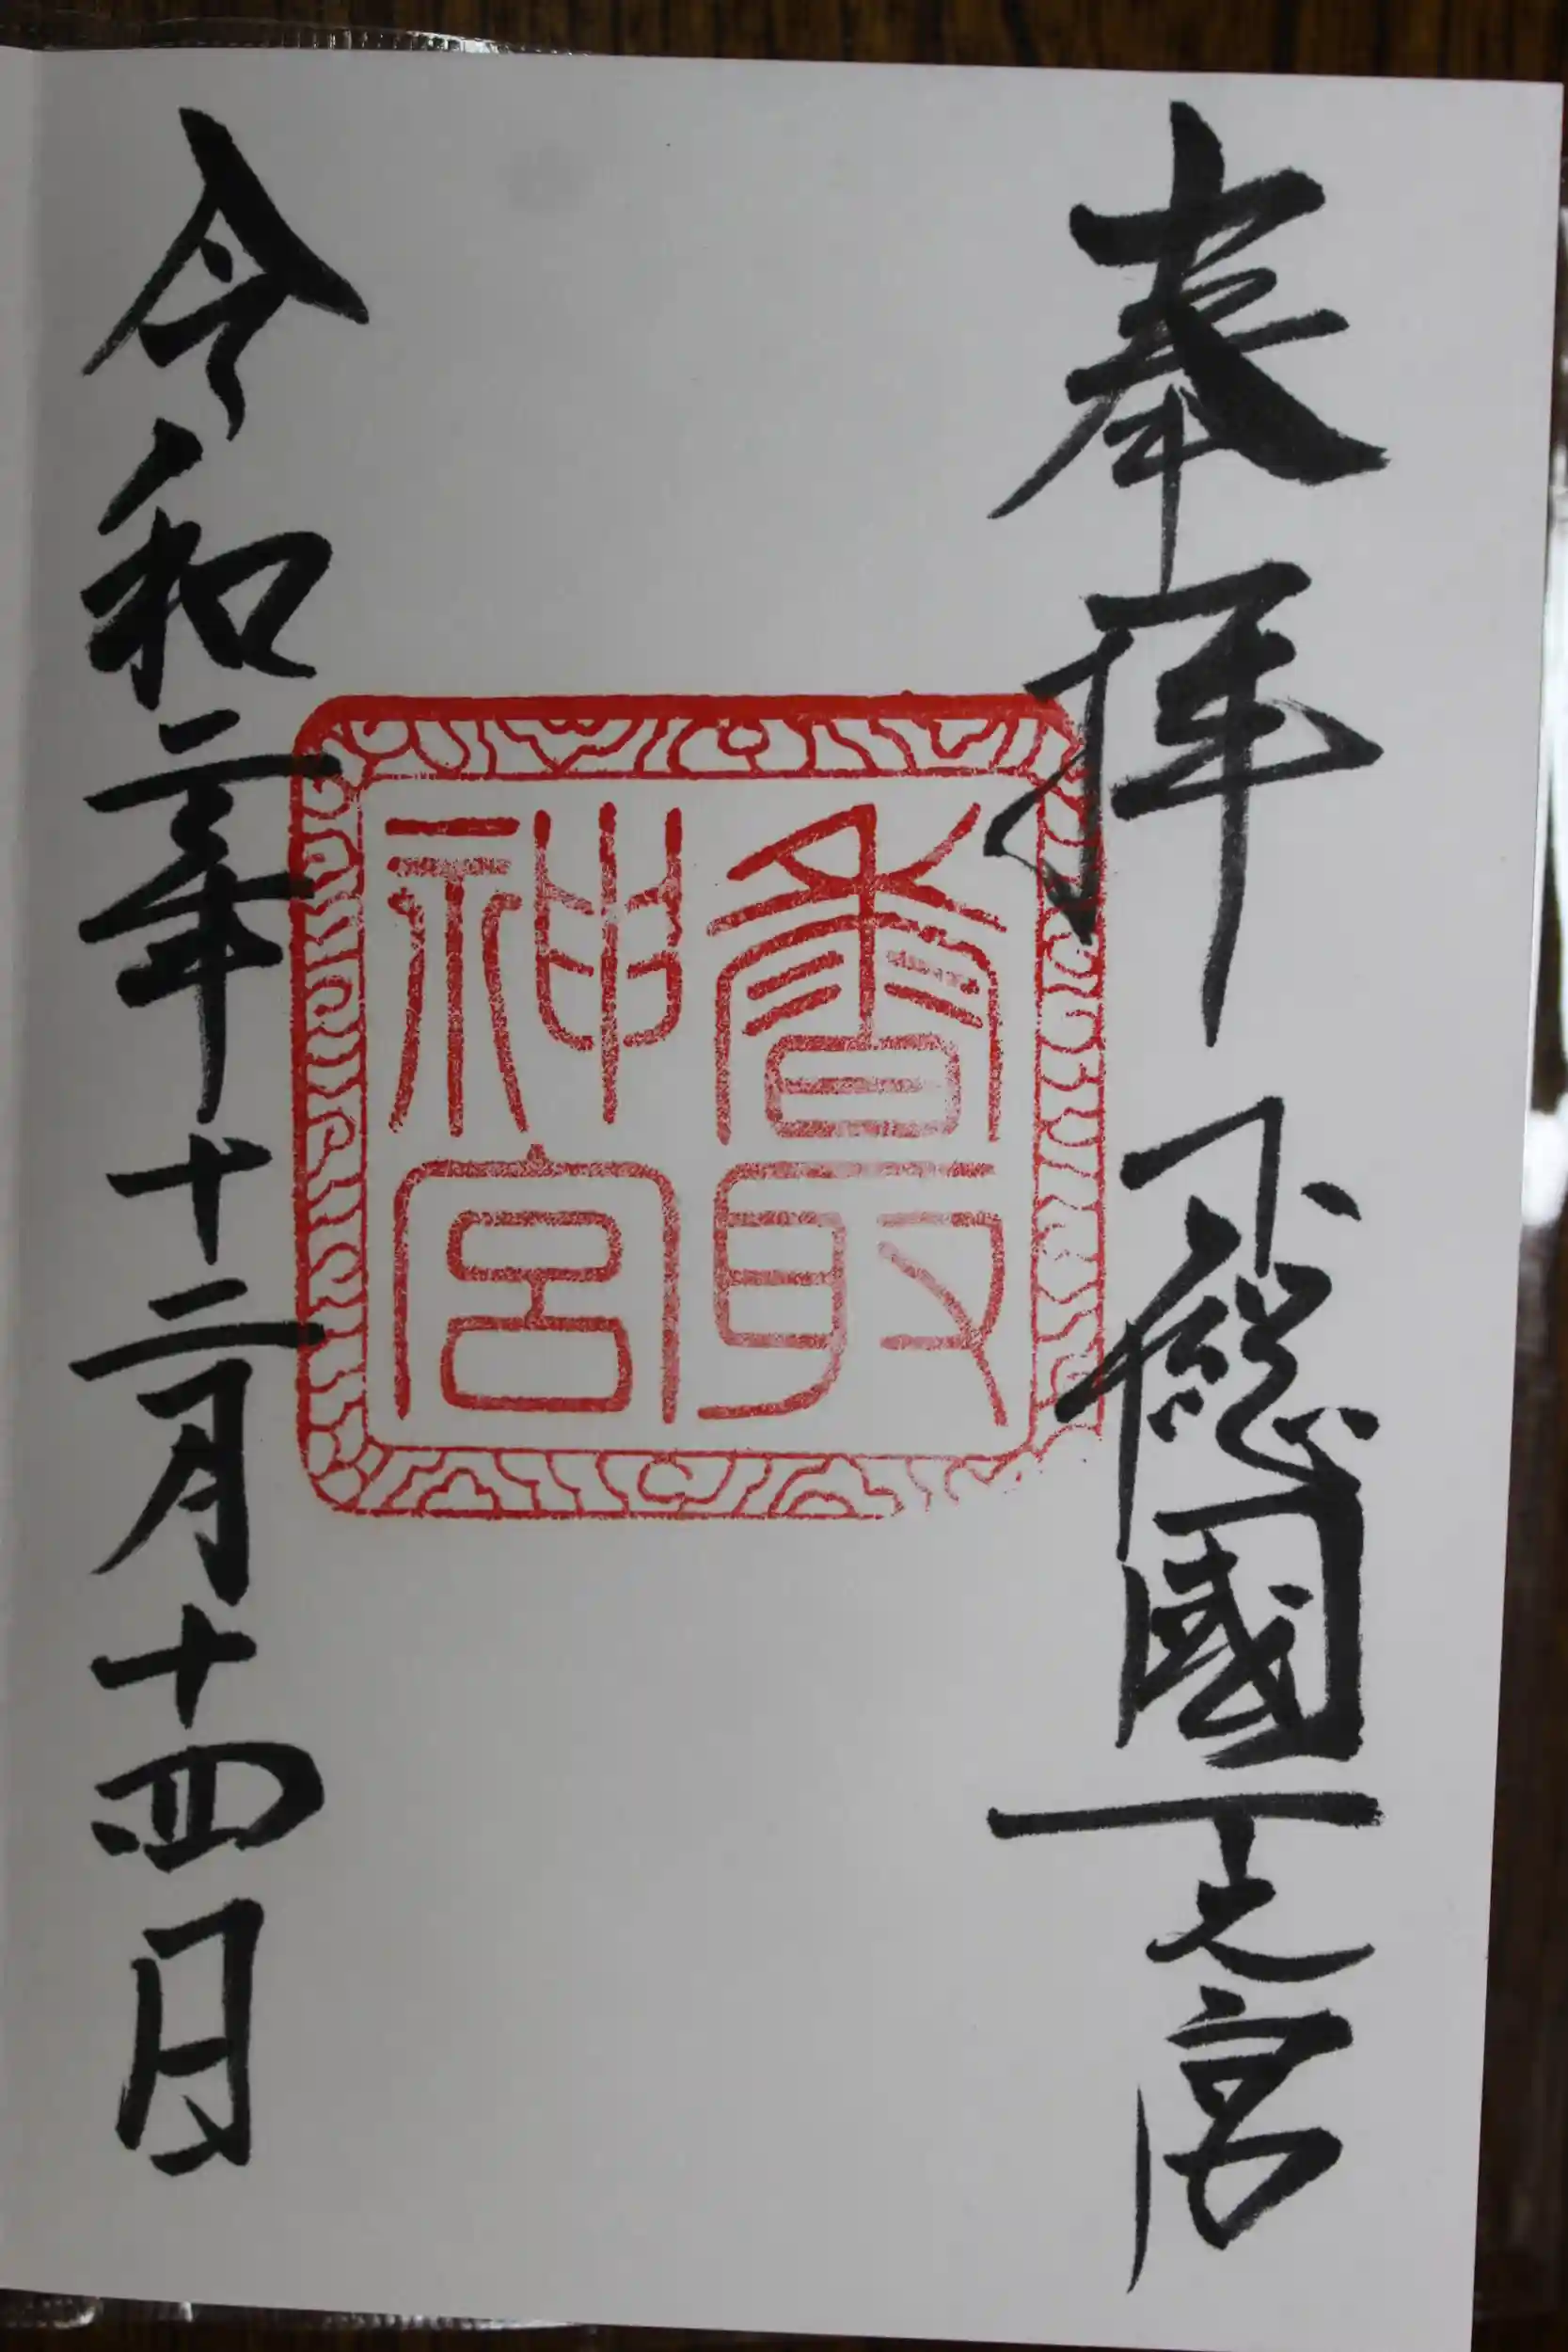 奉拝 下總國一之宮
香取
神宮
令和二年十二月十四日